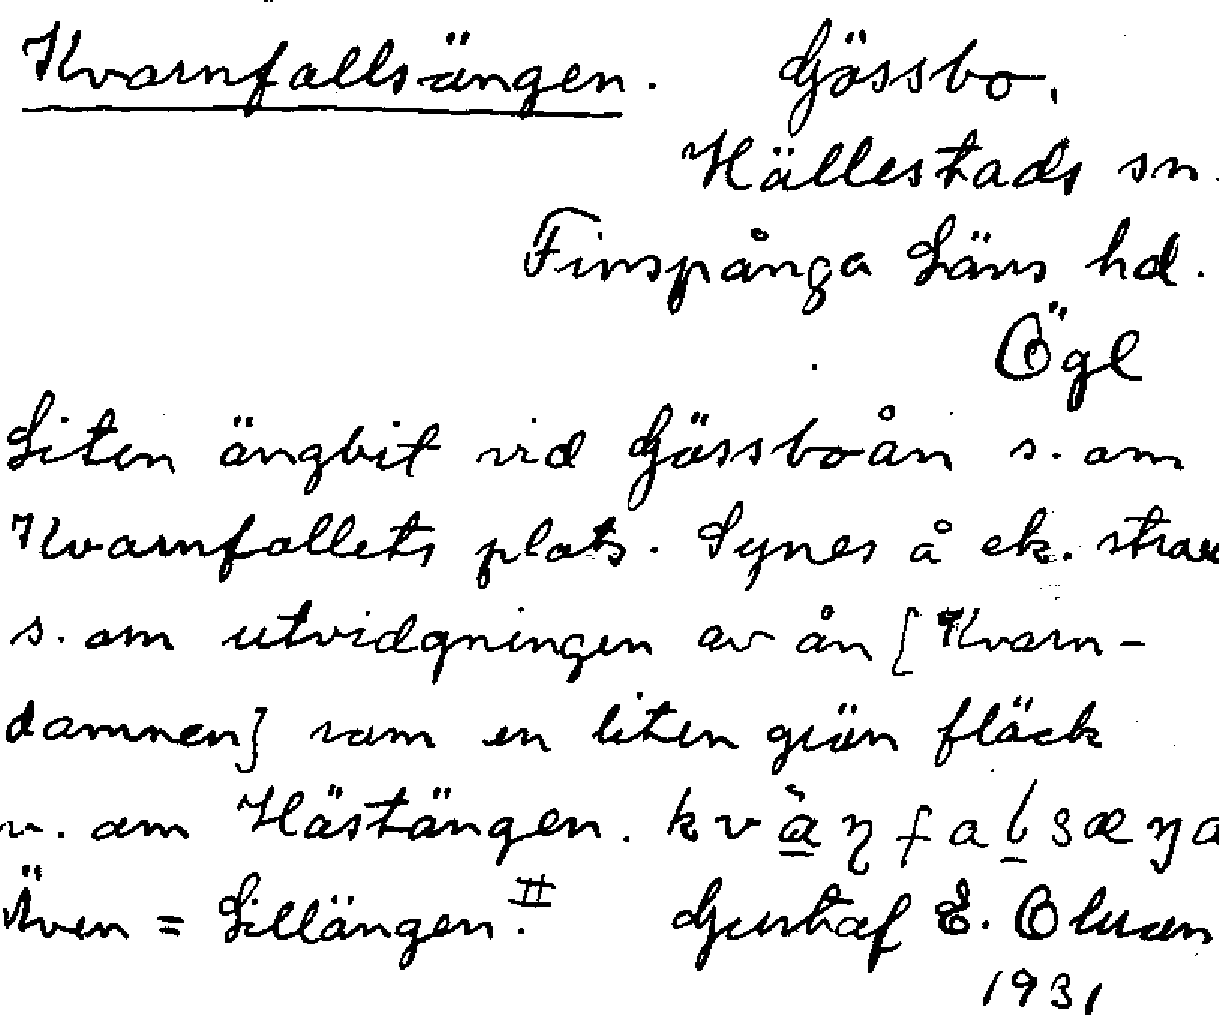 Kvarnfallsängen. Gössbo.
Hällestads sn.
Finspånga Läns hd.
Ögl
Liten ängbit vid Gössboån s. om
Kvarnfallets plats. Synes å ek. strax
s. om utvidgningen av ån [Kvarn-
dammen] som en liten grön fläck
v. om Hästängen.
Även = Lillängen. II Gustaf E. Olson
1931